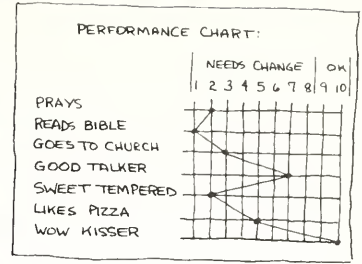 PERFORMANCE CHART:
NEEDS CHANGE OK
1 2 3 4 5 6 7 8 9 10
PRAYS
READS BIBLE
GOES TO CHURCH
GOOD TALKER
SWEET TEMPERED
LIKES PIZZA
WOW KISSER